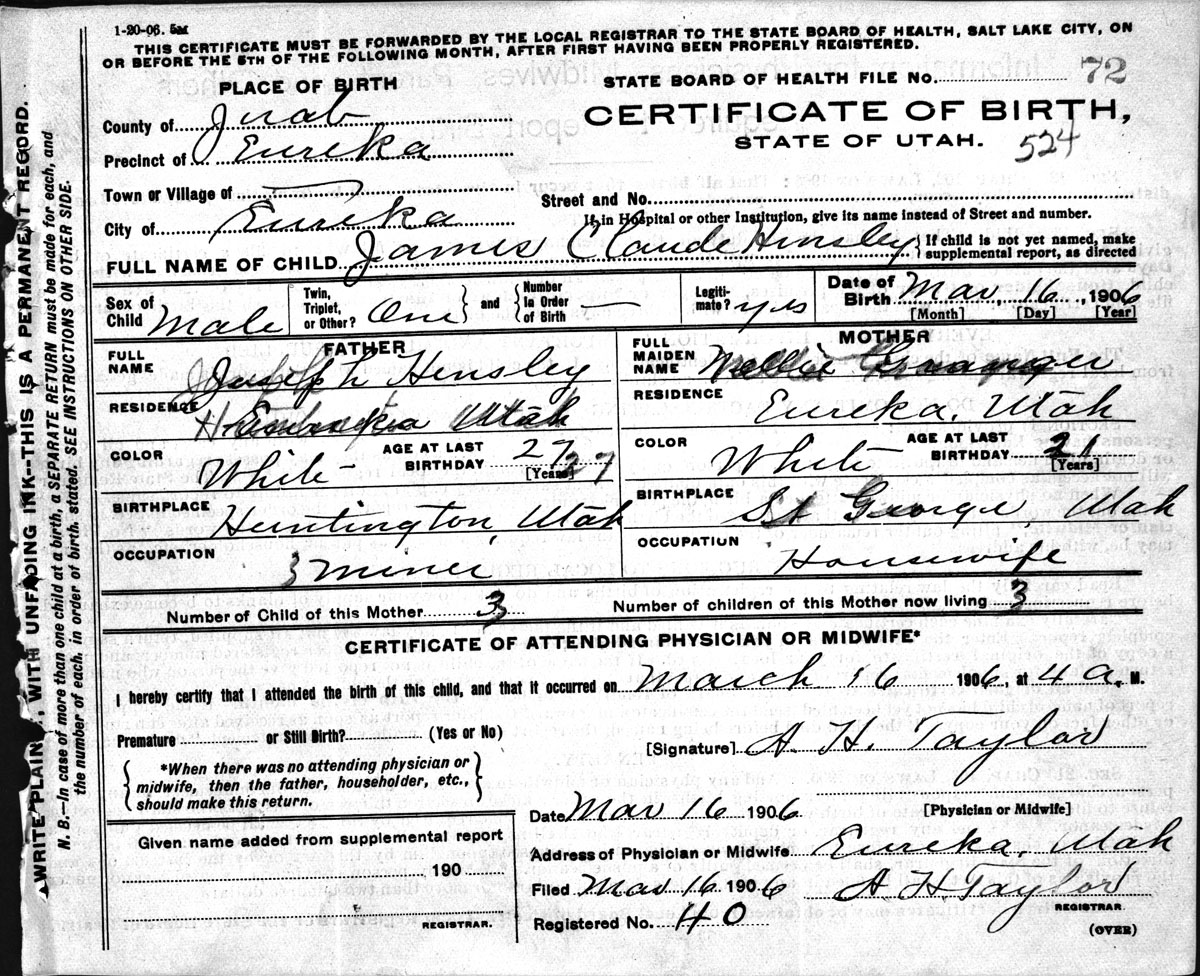 1-20-06. 5M
THIS CERTIFICATE MUST BE FORWARDED BY THE LOCAL REGISTRAR TO THE STATE BOARD OF HEALTH, SALT LAKE CITY, ON
OR BEFORE THE 5TH OF THE FOLLOWING MONTH, AFTER FIRST HAVING BEEN PROPERLY REGISTERED.
PLACE OF BIRTH
STATE BOARD OF HEALTH FILE No. 72
County of Juab
CERTIFICATE OF BIRTH,
Precinct of Eureka
STATE OF UTAH. 524
Town or Village of
Street and No.
City of Eureka
If in Hospital or other Institution, give its name instead of Street and number.
FULL NAME OF CHILD James Claude Hinsley { If child is not yet named, make
supplemental report, as directed
Sex of Child Male
Twin, Triplet, or Other? One } and { Number In Order of Birth —
Legitimate? yes
Date of Birth Mar, 16, 1906
[Month] [Day] [Year]
FATHER
FULL NAME Joseph Hinsley
MOTHER
FULL MAIDEN NAME Nellie Granger
RESIDENCE Eureka Utah
RESIDENCE Eureka, Utah
COLOR White
AGE AT LAST BIRTHDAY 27 27
[Years]
COLOR White
AGE AT LAST BIRTHDAY 21
[Years]
BIRTHPLACE Huntington, Utah
BIRTHPLACE St George, Utah
OCCUPATION 3 miner
OCCUPATION Housewife
Number of Child of this Mother 3
Number of children of this Mother now living 3
CERTIFICATE OF ATTENDING PHYSICIAN OR MIDWIFE*
I hereby certify that I attended the birth of this child, and that it occurred on March 16 1906, at 4 a. M.
Premature or Still Birth? (Yes or No)
[Signature] A. H. Taylor
{ *When there was no attending physician or
midwife, then the father, householder, etc.,
should make this return. }
Date Mar 16 1906
[Physician or Midwife]
Given name added from supplemental report
190
REGISTRAR.
Address of Physician or Midwife Eureka, Utah
Filed Mar 16 1906 A. H Taylor
REGISTRAR.
Registered No. 40
(OVER)
WRITE PLAINLY, WITH UNFADING INK--THIS IS A PERMANENT RECORD.
N. B.--In case of more than one child at a birth, a SEPARATE RETURN must be made for each, and
the number of each, in order of birth, stated. SEE INSTRUCTIONS ON OTHER SIDE.